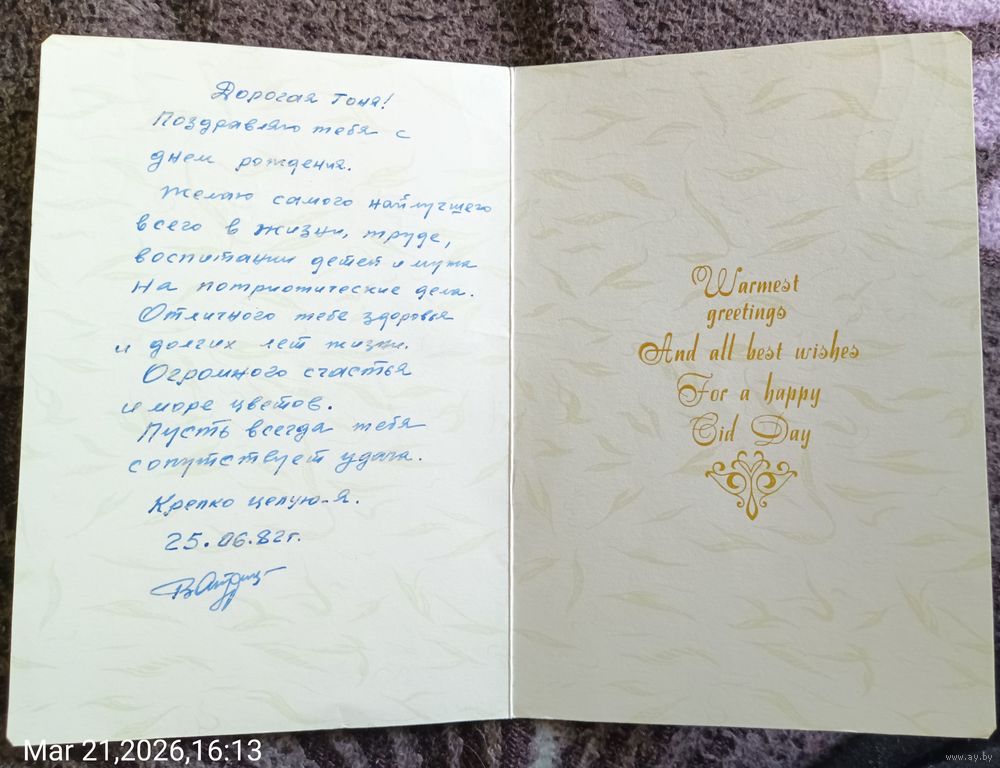 Дорогая Тоня!
Поздравляю тебя с
днем рождения.
Желаю самого найлучшего
всего в жизни, труде,
воспитании детей и мужа
на потриотические дела.
Отличного тебе здоровья
и долгих лет жизни.
Огромного счастья
и море цветов.
Пусть всегда тебя
сопутствует удача.
Крепко целую-я.
25.06.82г.
Warmest
greetings
And all best wishes
For a happy
Eid Day
Mar 21,2026,16:13
www.ay.by